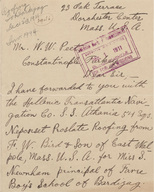 23 Oak Terrace
Dorchester Center
Mass. U.S.A.
Mr. W. W. Peet
Constantinople
Dear Sir:-
I have forwarded to you with
the Hellenic Transatlantic Navi
gation Co. S.S. Athinai, 5
Neponset Roofing from
F. W. Bird & Son of East Wal
pole, Mass. U.S.A. for Miss S.
Newnham principal of
Boy's School of Bardizag